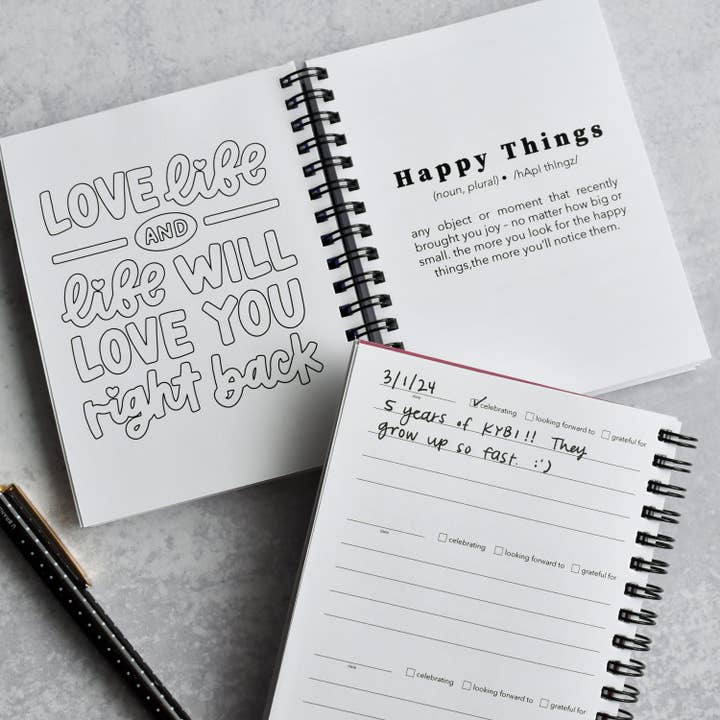 LOVE life
AND
life WILL
LOVE YOU
right back
Happy Things
(noun, plural) • /hApI thIngz/
any object or moment that recently
brought you joy - no matter how big or
small. the more you look for the happy
things,the more you'll notice them.
3/1/24
date
celebrating looking forward to grateful for
5 years of KYBI!! They
grow up so fast. :')
date
celebrating looking forward to grateful for
date
celebrating looking forward to grateful for